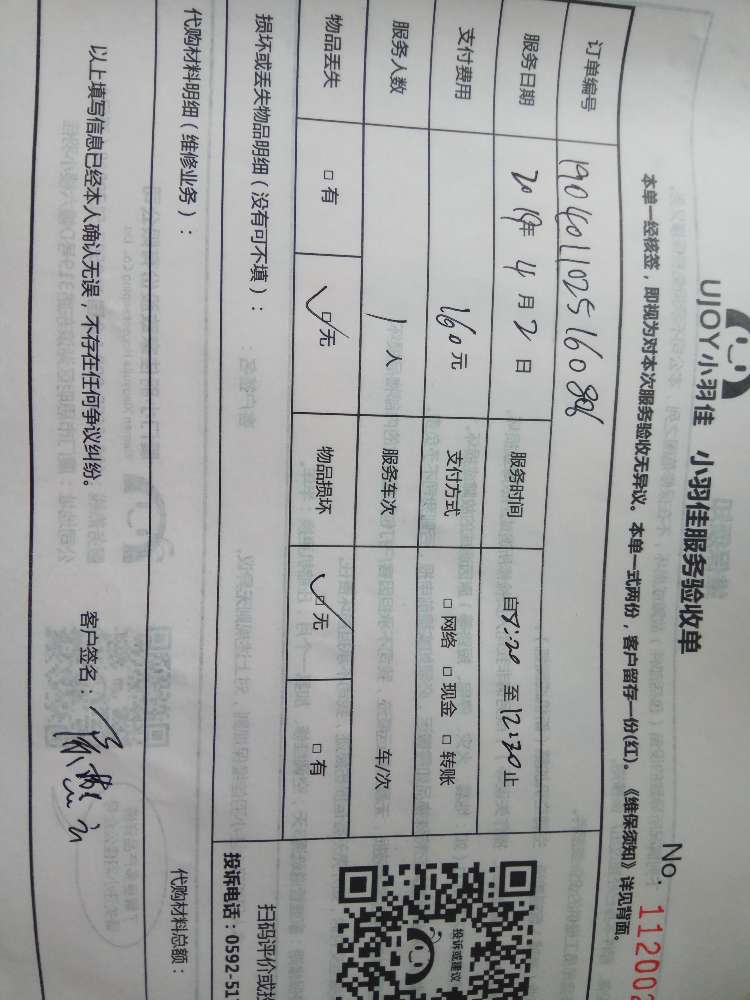 UJOY小羽佳 小羽佳服务验收单
No. 112002
本单一经核签，即视为对本次服务验收无异议。本单一式两份，客户留存一份(红)。《维保须知》详见背面。
订单编号 190401102516080
服务日期 2019年 4月 2日 服务时间 自8:20 至12:20止
支付费用 160元 支付方式 □网络 □现金 □转账
服务人数 1人 服务车次 车/次
物品丢失 □有 ☑无 物品损坏 ☑无 □有
损坏或丢失物品明细（没有可不填）：
代购材料明细（维修业务）：
代购材料总额：
以上填写信息已经本人确认无误，不存在任何争议纠纷。 客户签名：
投诉或建议
扫码评价或投
投诉电话：0592-51